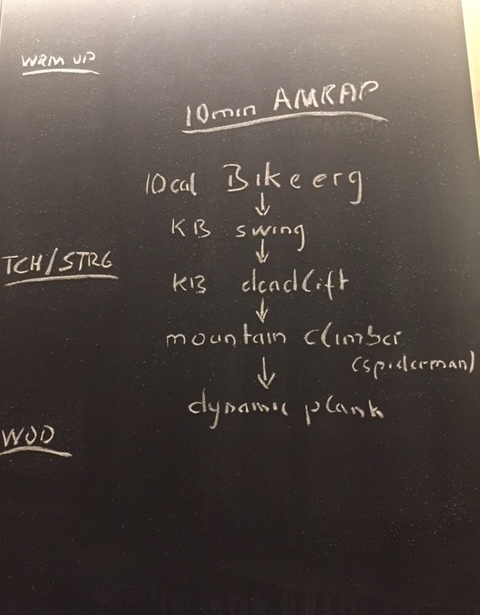 WRM UP
10min AMRAP
10cal Bike erg
KB swing
TCH/STRG
KB deadlift
mountain climber
(spiderman)
dynamic plank
WOD